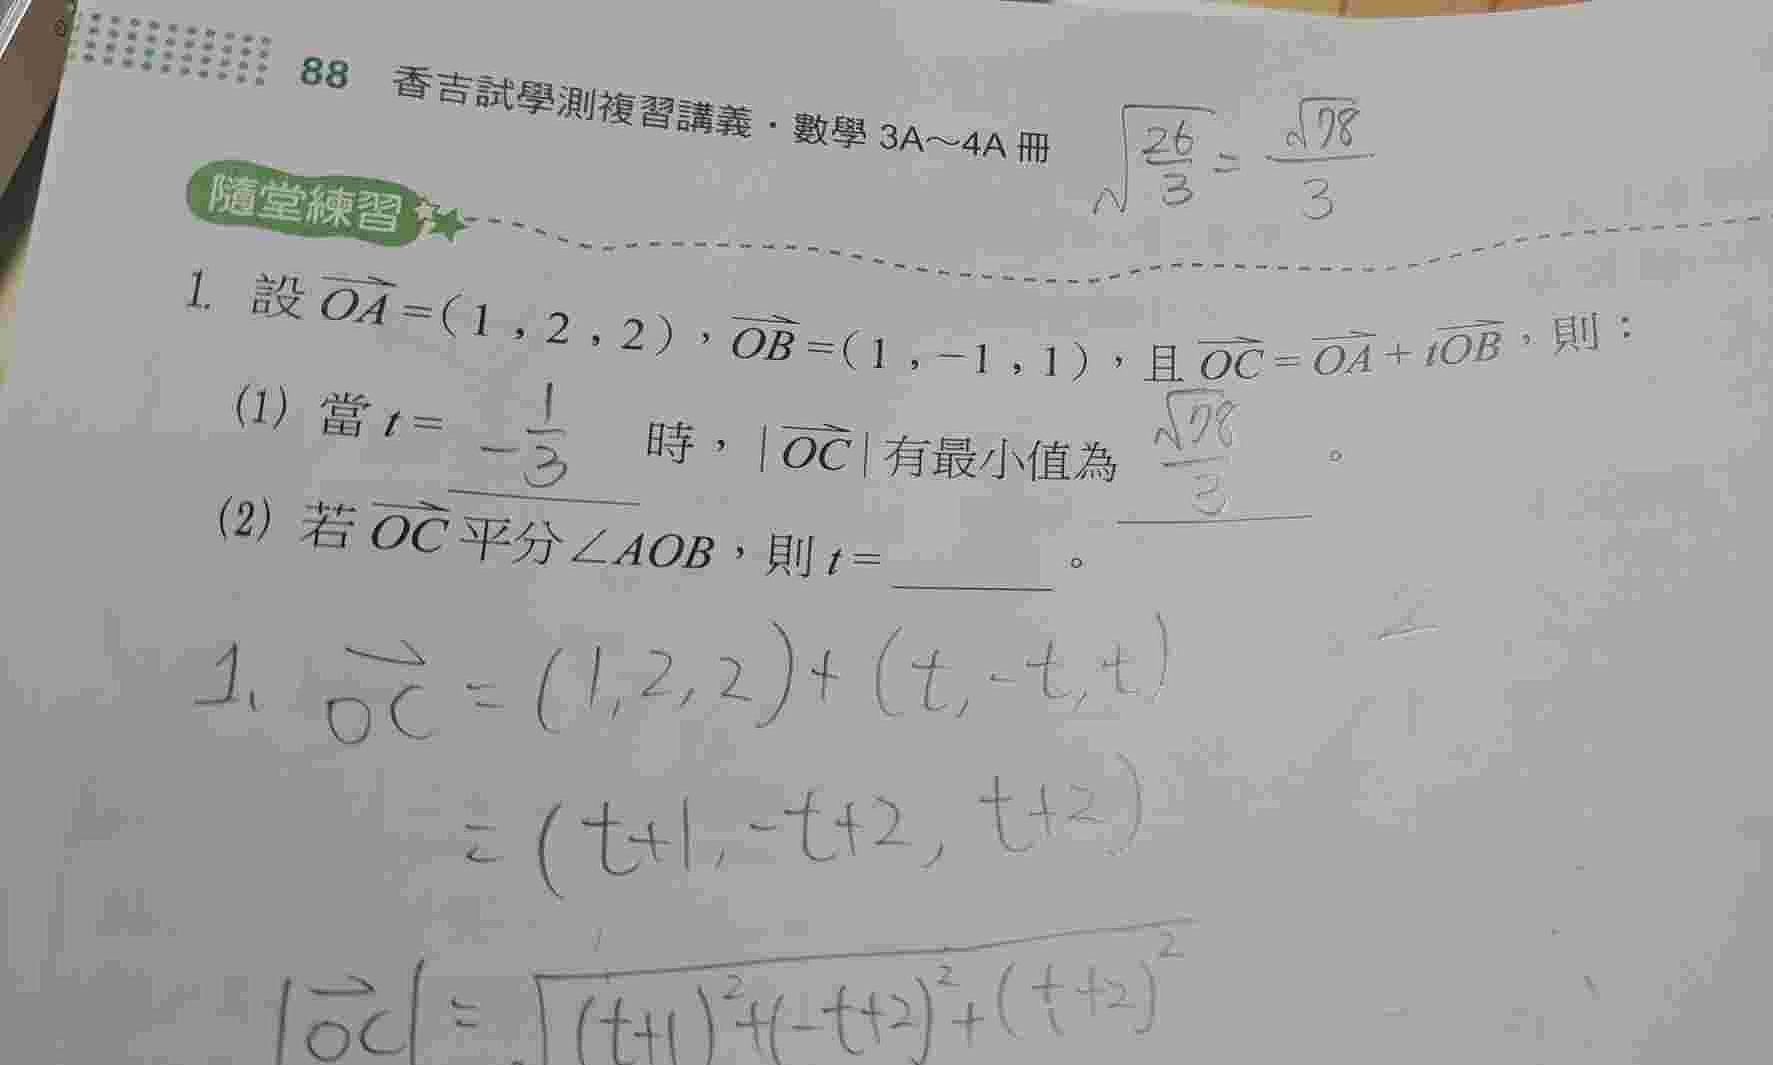 88 香吉試學測複習講義・數學 3A～4A 冊
√(26/3) = √78/3
隨堂練習
1. 設 \overrightarrow{OA}=(1,2,2),\overrightarrow{OB}=(1,-1,1),且 \overrightarrow{OC}=\overrightarrow{OA}+t\overrightarrow{OB},則：
(1) 當 t= -1/3 時,|\overrightarrow{OC}|有最小值為 √78/3 。
(2) 若 \overrightarrow{OC} 平分∠AOB,則 t=______。
1. \overrightarrow{OC} = (1,2,2)+(t,-t,t)
= (t+1,-t+2,t+2)
|\overrightarrow{OC}| = √((t+1)²+(-t+2)²+(t+2)²)